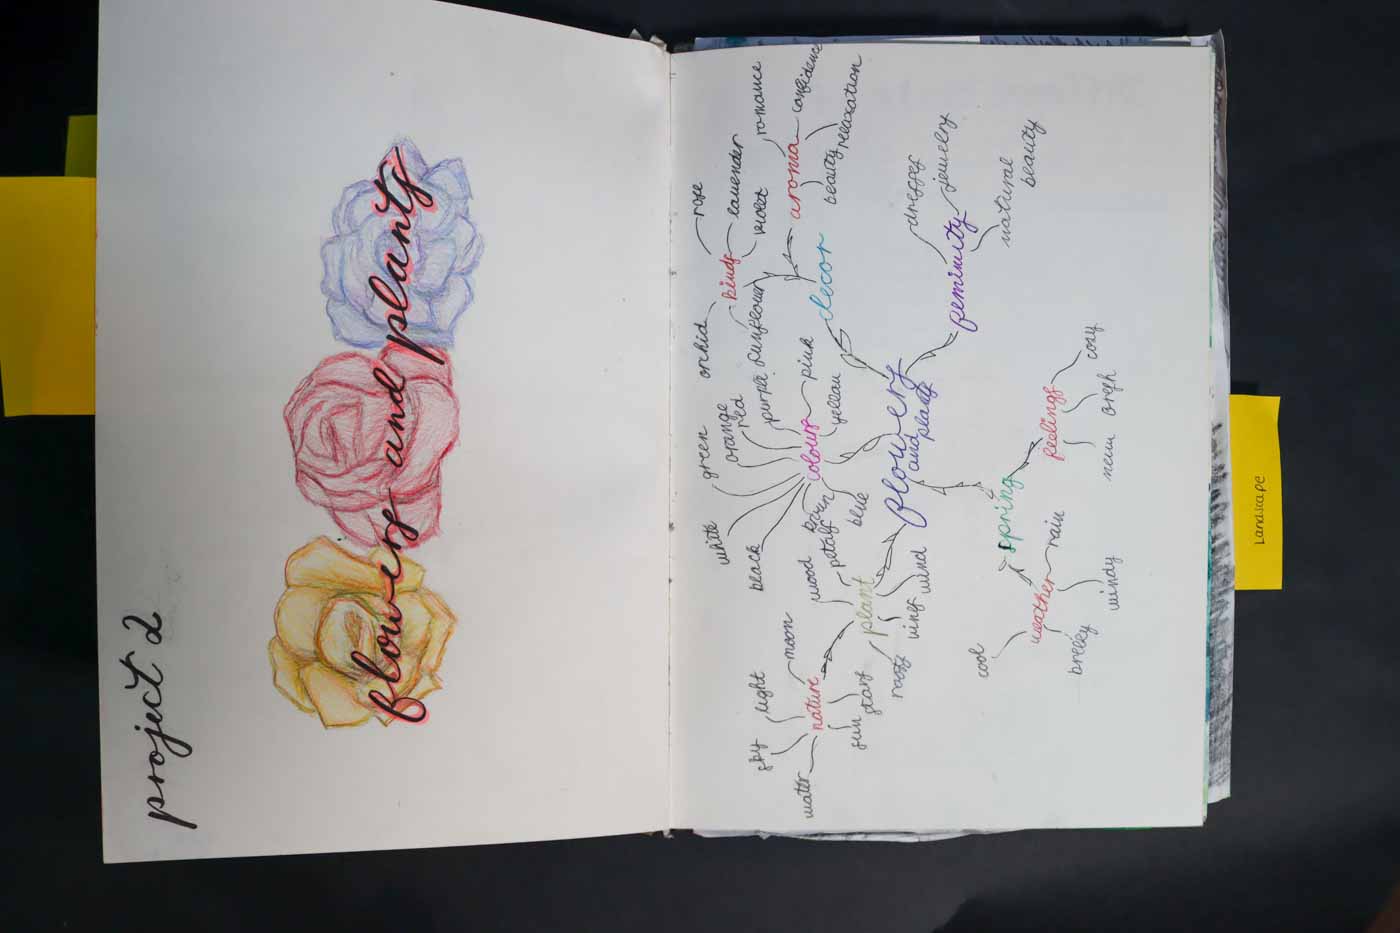 project 2
flowers and plants
rose
lavender
violet
kinds
orchid
sunflower
romance
confidence
aroma
beauty
relaxation
decor
green
orange
red
purple
pink
yellow
colours
white
black
blue
flowers
and plants
dresses
jewelry
feminity
natural
beauty
wood
petals
plant
roots
vines
wind
sky
light
moon
nature
water
sun
stars
spring
feelings
cozy
fresh
new
weather
rain
cool
breezy
windy
Landscape